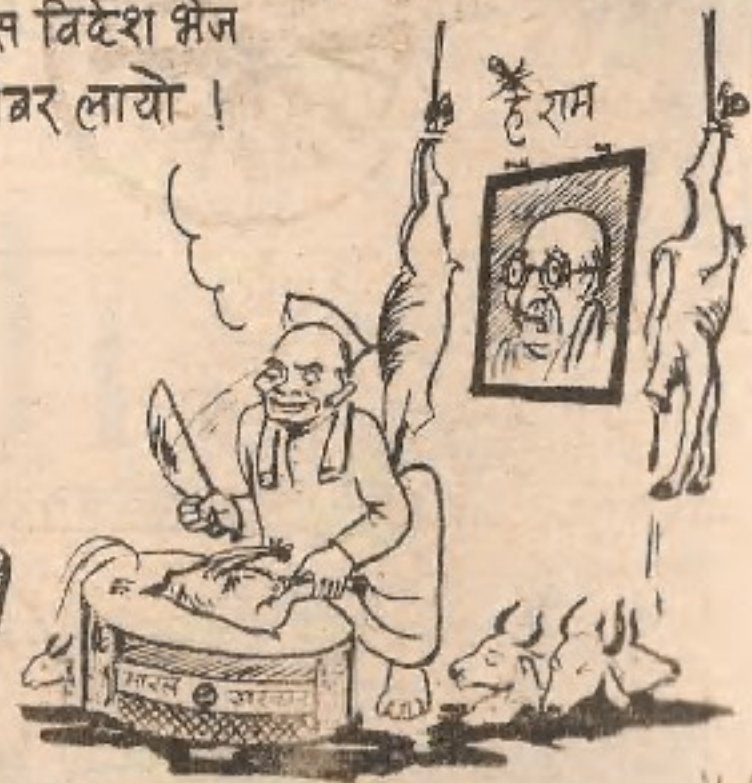 विदेश भेज
लायो !
हे राम
भारत सरकार